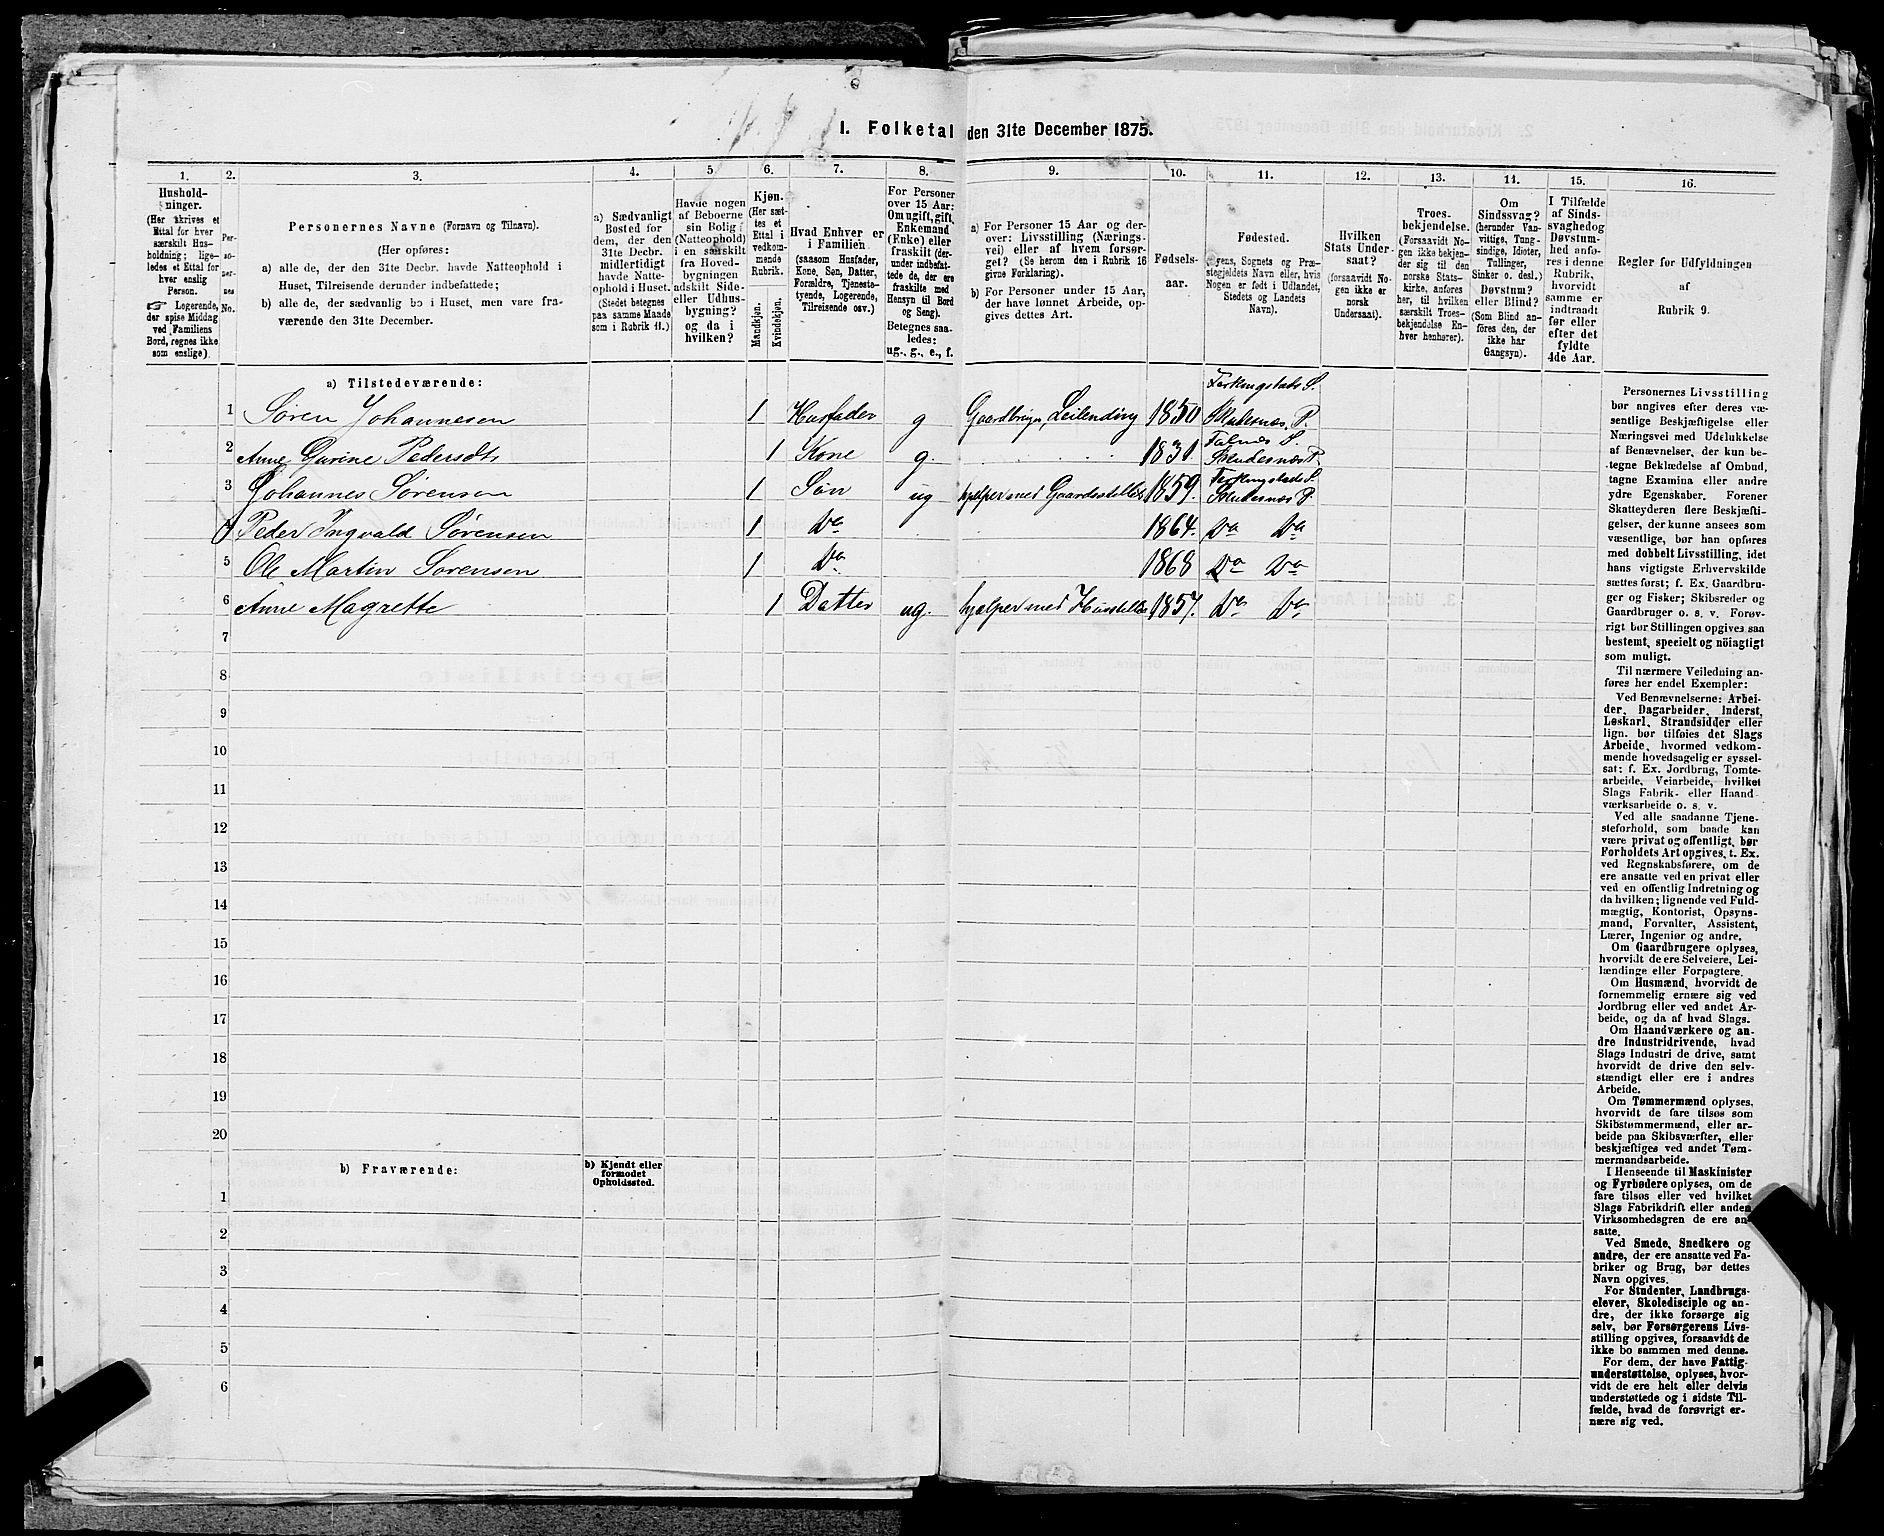 I. Folketal den 31te December 1875.
1. 2. 3. 4. 5. 6. 7. 8. 9. 10. 11. 12. 13. 14. 15. 16.
Hushold-
ninger.
(Her skrives et
Ettal for hver
særskilt Hus-
holdning; lige-
ledes et Ettal for
hver enslig
Person.
☞ Logerende,
der spise Middag
ved Familiens
Bord, regnes ikke
som enslige).
Per-
so-
ner-
nes
No.
Personernes Navne (Fornavn og Tilnavn).
(Her opføres:
a) alle de, der den 31te Decbr. havde Natteophold i
Huset, Tilreisende derunder indbefattede;
b) alle de, der sædvanlig bo i Huset, men vare fra-
værende den 31te December.
a) Sædvanligt
Bosted for
dem, der den
31te Decbr.
midlertidigt
havde Natte-
ophold i Huset.
(Stedet betegnes
paa samme Maade
som i Rubrik 11.)
Havde nogen
af Beboerne
sin Bolig
(Natteophold)
i en særskilt
fra Hoved-
bygningen
adskilt Side-
eller Udhus-
bygning?
og da i
hvilken?
Kjøn.
(Her sæt-
tes et
Ettal i
vedkom-
mende
Rubrik.
Mandkjøn.
Kvindekjøn.
Hvad Enhver er
i Familien
(saasom Husfader,
Kone, Søn, Datter,
Forældre, Tjeneste-
tyende, Logerende,
Tilreisende osv.)
For Personer
over 15 Aar:
Om ugift, gift,
Enkemand
(Enke) eller
fraskilt (der-
under indbefat-
tede de, der ere
fraskilte med
Hensyn til Bord
og Seng).
Betegnes saa-
ledes:
ug., g., e., f.
a) For Personer 15 Aar og der-
over: Livsstilling (Nærings-
vei) eller af hvem forsør-
get? (Se herom den i Rubrik 16
givne Forklaring).
b) For Personer under 15 Aar,
der have lønnet Arbeide, op-
gives dettes Art.
Fødsels-
aar.
Fødested.
(Byens, Sognets og Præ-
stegjeldets Navn eller, hvis
Nogen er født i Udlandet,
Stedets og Landets
Navn).
Hvilken
Stats Under-
saat?
(forsaavidt No-
gen ikke er
norsk
Undersaat).
Troes-
bekjendelse.
(Forsaavidt No-
gen ikke bekjen-
der sig til den
norske Stats-
kirke, anføres
her, til hvilken
særskilt Troes-
bekjendelse En-
hver henhører).
Om
Sindssvag?
(herunder Van-
vittige, Tung-
sindige, Idioter,
Tullinger,
Sinker o. desl.)
Døvstum?
eller Blind?
(Som Blind an-
føres den, der
ikke har
Gangsyn).
I Tilfælde
af Sinds-
svaghed og
Døvstum-
hed anfø-
res i denne
Rubrik,
hvorvidt
samme er
indtraadt
før eller
efter det
fyldte
4de Aar.
Regler for Udfyldningen
af
Rubrik 9.
a) Tilstedeværende:
1 Søren Johannesen 1 Husfader g Gaardbruger, Leilending 1850 Ferkingstads S. Skudesnæs P.
2 Anne Gurine Pedersdtr 1 Kone g. 1831. Falnæs S. Skudesnæs P.
3 Johannes Sørensen 1 Søn ug hjelper med Gaardsstellet 1859. Ferkingstads S. Skudesnæs P.
4 Peder Ingvald Sørensen 1 Do 1864. Do Do
5 Ole Martin Sørensen 1 Do 1868 Do Do
6 Anne Magrette 1 Datter ug. hjelper med Husstellet 1857. Do Do
7
8
9
10
11
12
13
14
15
16
17
18
19
20
b) Fraværende:
b) Kjendt eller
formodet
Opholdssted.
1
2
3
4
5
6
Personernes Livsstilling
bør angives efter deres væ-
sentlige Beskjæftigelse eller
Næringsvei med Udelukkelse
af Benævnelser, der kun be-
tegne Beklædelse af Ombud,
tagne Examina eller andre
ydre Egenskaber. Forener
Skatteyderen flere Beskjæfti-
gelser, der kunne ansees som
væsentlige, bør han opføres
med dobbelt Livsstilling, idet
hans vigtigste Erhvervskilde
sættes først; f. Ex. Gaardbru-
ger og Fisker; Skibsreder og
Gaardbruger o. s. v. Forøv-
rigt bør Stillingen opgives saa
bestemt, specielt og nöiagtigt
som muligt.
Til nærmere Veiledning an-
føres her endel Exempler:
Ved Benævnelserne: Arbei-
der, Dagarbeider, Inderst,
Løskarl, Strandsidder eller
lign. bør tilføies det Slags
Arbeide, hvormed vedkom-
mende hovedsagelig er syssel-
sat: f. Ex. Jordbrug, Tomte-
arbeide, Veiarbeide, hvilket
Slags Fabrik- eller Haand-
værksarbeide o. s. v.
Ved alle saadanne Tjene-
steforhold, som baade kan
være privat og offentligt, bør
Forholdets Art opgives, t. Ex.
ved Regnskabsførere, om de
ere ansatte ved en privat eller
ved en offentlig Indretning og
da hvilken; lignende ved Fuld-
mægtig, Kontorist, Opsyns-
mand, Forvalter, Assistent,
Lærer, Ingeniør og andre.
Om Gaardbrugere oplyses,
hvorvidt de ere Selveiere, Lei-
lændinge eller Forpagtere.
Om Husmænd, hvorvidt de
fornemmelig ernære sig ved
Jordbrug eller ved andet Ar-
beide, og da af hvad Slags.
Om Haandværkere og an-
dre Industridrivende, hvad
Slags Industri de drive, samt
hvorvidt de drive den selv-
stændigt eller ere i andres
Arbeide.
Om Tømmermænd oplyses,
hvorvidt de fare tilsøs som
Skibstømmermænd, eller ar-
beide paa Skibsværfter, eller
beskjæftiges ved andet Tøm-
mermandsarbeide.
I Henseende til Maskinister
og Fyrbødere oplyses, om de
fare tilsøs eller ved hvilket
Slags Fabrikdrift eller anden
Virksomhedsgren de ere an-
satte.
Ved Smede, Snedkere og
andre, der ere ansatte ved Fa-
briker og Brug, bør dettes
Navn opgives.
For Studenter, Landbrugs-
elever, Skoledisciple og an-
dre, der ikke forsørge sig
selv, bør Forsørgerens Livs-
stilling opgives, forsaavidt de
ikke bo sammen med denne.
For dem, der have Fattig-
understøttelse, oplyses, hvor-
vidt de ere helt eller delvis
understøttede og i sidste Til-
fælde, hvad de forøvrigt er-
nære sig ved.